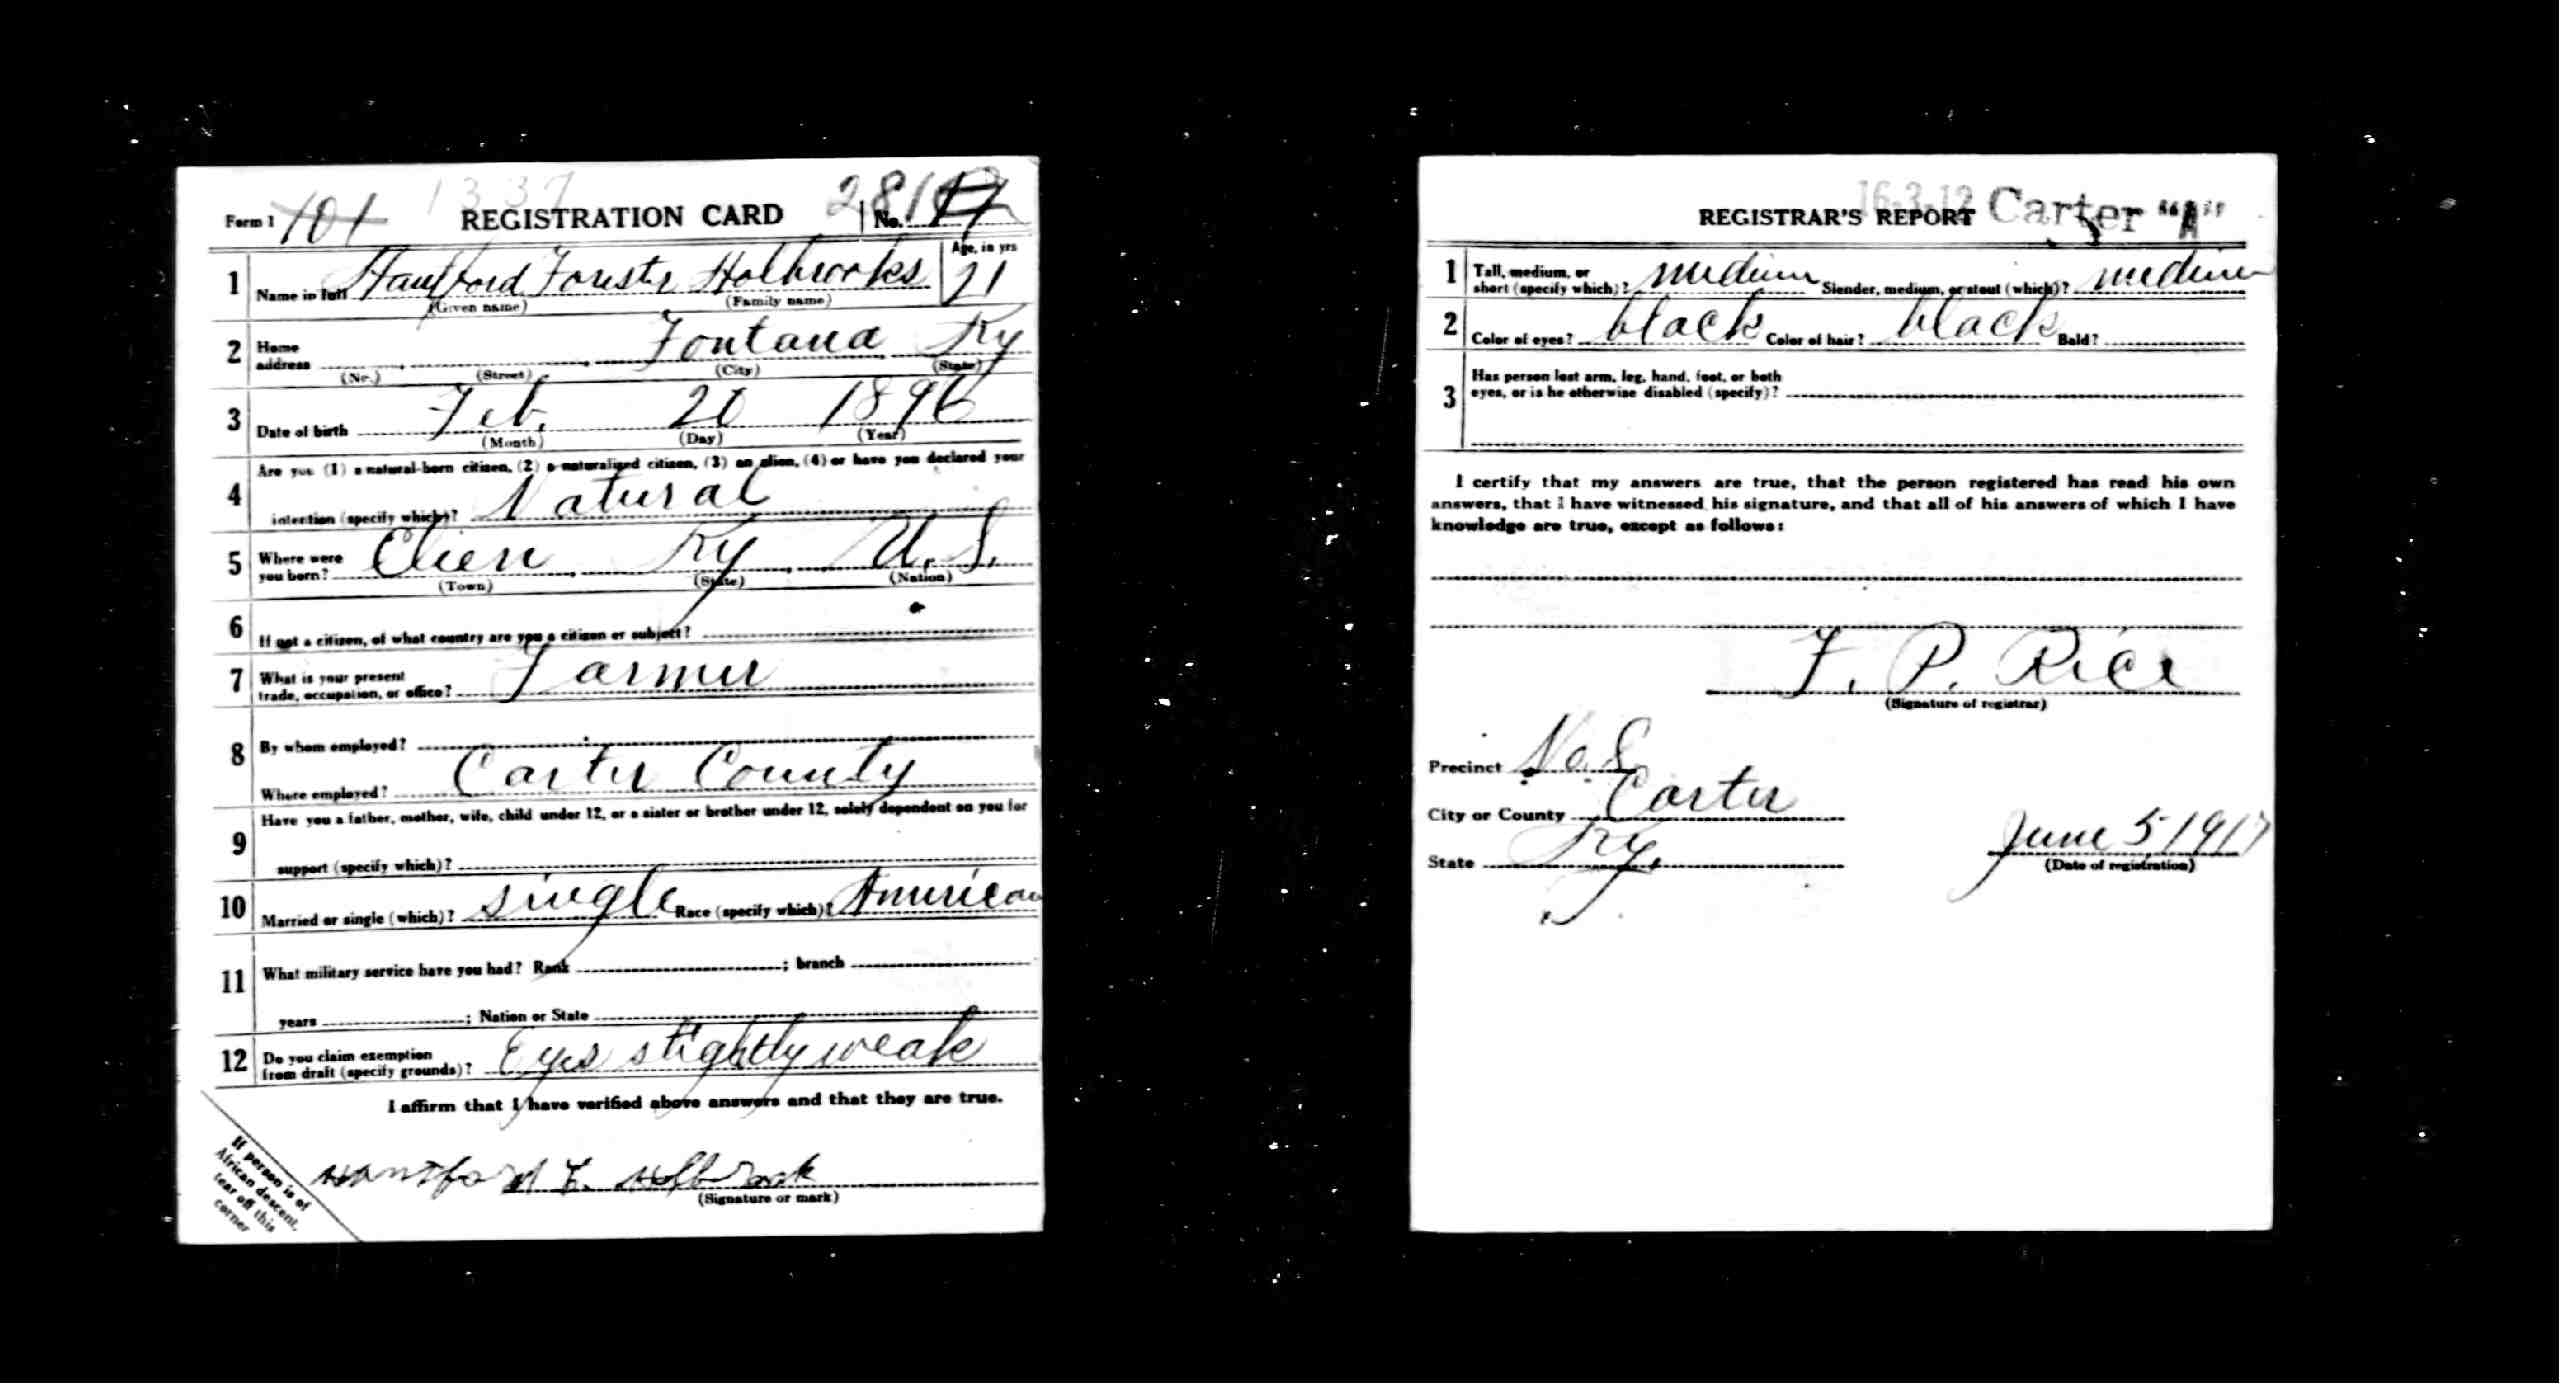 1337
Form 1 101 REGISTRATION CARD No. 17
1 Name in full Hansford Forister Holbrooks Age, in yrs 21
(Given name) (Family name)
2 Home address Fontana Ky
(No.) (Street) (City) (State)
3 Date of birth Feb. 20 1896
(Month) (Day) (Year)
Are you (1) a natural-born citizen, (2) a naturalized citizen, (3) an alien, (4) or have you declared your
4 intention (specify which)? Natural
5 Where were you born? Ky U.S.
(Town) (State) (Nation)
6 If not a citizen, of what country are you a citizen or subject?
7 What is your present trade, occupation, or office? Farmer
8 By whom employed?
Where employed? Carter County
Have you a father, mother, wife, child under 12, or a sister or brother under 12, solely dependent on you for
9 support (specify which)?
10 Married or single (which)? single Race (specify which)? American
11 What military service have you had? Rank ; branch
years ; Nation or State
12 Do you claim exemption from draft (specify grounds)? Eyes slightly weak
I affirm that I have verified above answers and that they are true.
Hansford F. Holbrook
(Signature or mark)
If person is of
African descent,
tear off this
corner
16-3-12 Carter "A"
REGISTRAR'S REPORT
1 Tall, medium, or short (specify which)? medium Slender, medium, or stout (which)? medium
2 Color of eyes? black Color of hair? black Bald?
3 Has person lost arm, leg, hand, foot, or both
eyes, or is he otherwise disabled (specify)?
I certify that my answers are true, that the person registered has read his own
answers, that I have witnessed his signature, and that all of his answers of which I have
knowledge are true, except as follows:
F. P. Rice
(Signature of registrar)
Precinct No. 8
City or County Carter
State Ky.
June 5 1917
(Date of registration)